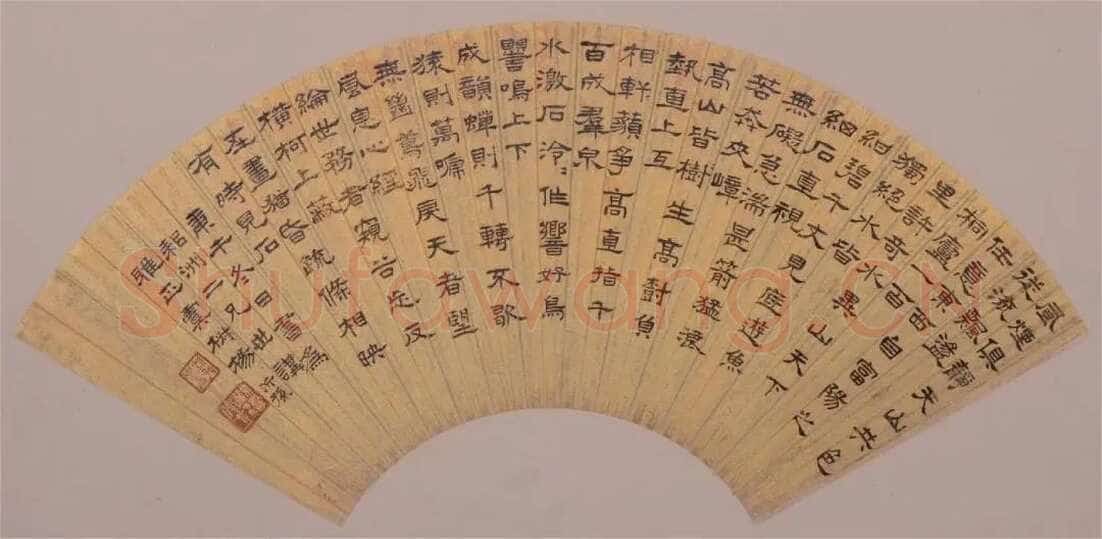 風煙俱淨天山共色
從流飄蕩
任意東西自富陽至
桐廬一百許
里奇山異水天下
獨絕水皆
紺碧千丈見底遊魚
細石直視
無礙急湍甚箭猛浪
若奔夾嶂
高山皆樹生高樹負
勢直上互
相軒藐爭高直指千
百成羣泉
水激石泠泠作響好鳥
嚶鳴上下
成韻蟬則千轉不歇
猿則萬嘯
無絕鳶飛戾天者望
息心經
綸世務者窺谷忘反
橫柯上蔽
在晝猶昏疏條相映
有時見日
午冬日書為
二兄世講
雅正
Shufawang.Cn